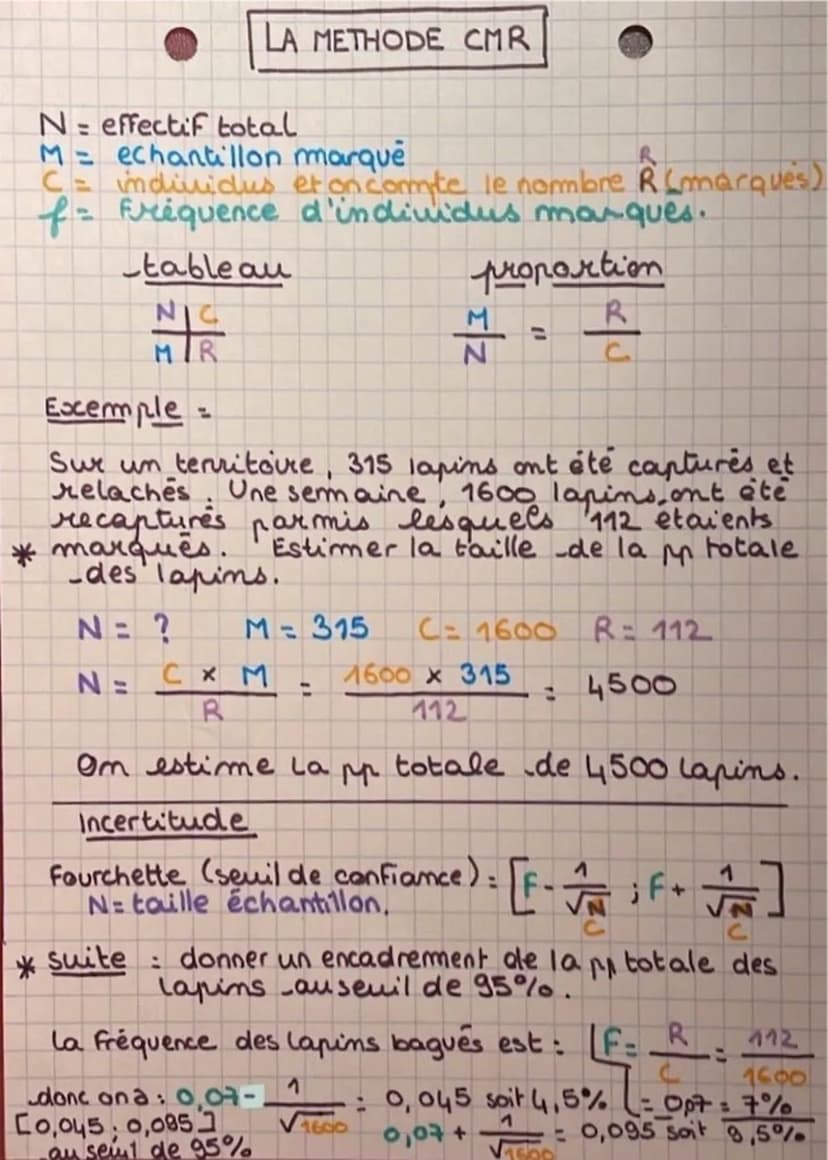 LA METHODE CMR
N = effectif total
M = echantillon marqué
R
C = individus et on compte le nombre R (marqués)
f = Fréquence d'individus marqués.
tableau
proportion
N | C
M | R
M/N = R/C
Exemple =
Sur un territoire, 315 lapins ont été capturés et
relachés. Une semaine, 1600 lapins, ont été
recapturés parmis lesquels 112 étaients
* marqués. Estimer la taille de la pp totale
des lapins.
N = ? M = 315 C = 1600 R = 112
N = C x M / R = 1600 x 315 / 112 = 4500
On estime la pp totale de 4500 lapins.
Incertitude
Fourchette (seuil de confiance) : [F - 1/√N ; F + 1/√N]
N = taille échantillon. C C
* suite : donner un encadrement de la pp totale des
lapins au seuil de 95%.
La fréquence des lapins bagués est : F = R/C = 112/1600
= 0,07 = 7%
donc on a : 0,07 - 1/√1600 = 0,045 soit 4,5%
[0,045 ; 0,095] 0,07 + 1/√1600 = 0,095 soit 9,5%
au seuil de 95%